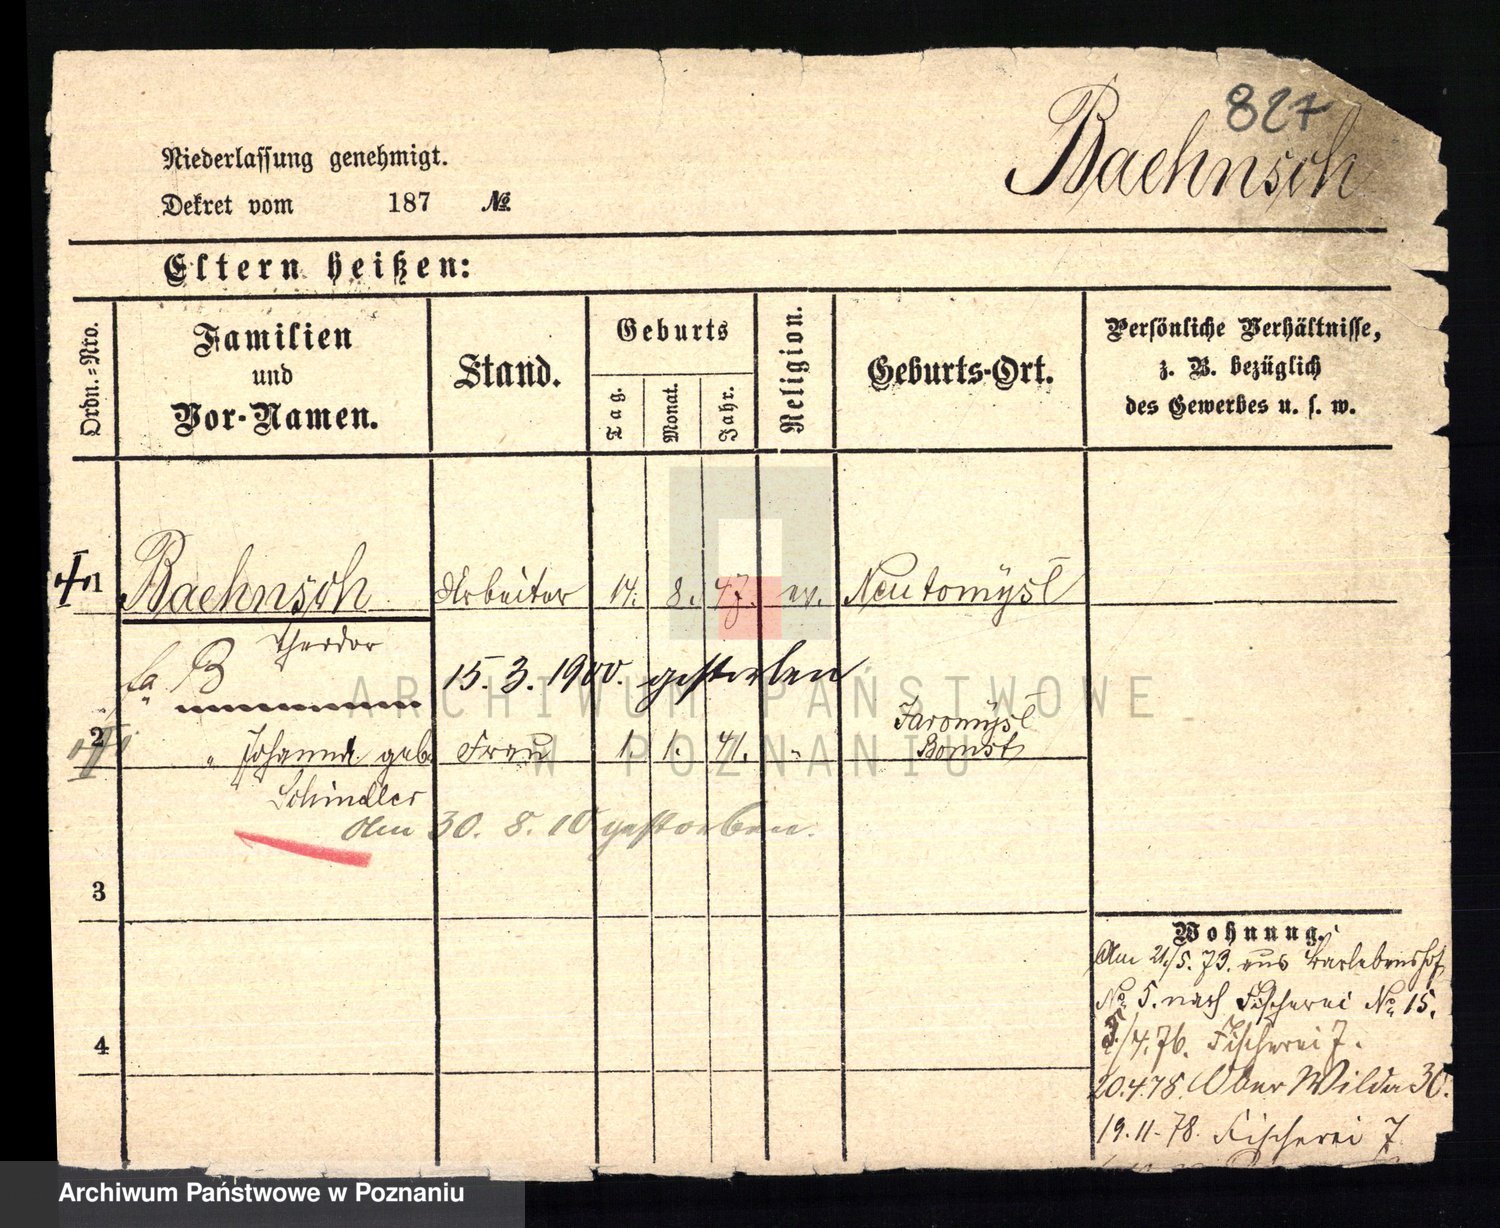 827
Baehnsch
Niederlassung genehmigt.
Dekret vom 187 №
Eltern heißen:
Ordn.=Nro.
Familien
und
Vor-Namen.
Stand.
Geburts
Tag.
Monat.
Jahr.
Religion.
Geburts-Ort.
Persönliche Verhältnisse,
z. B. bezüglich
des Gewerbes u. s. w.
1 Baehnsch Arbeiter 14. 8. 47. ev. Neutomysl
Theodor
B 15. 3. 1900. gestorben
2 " Johanna geb. Frau 1. 1. 41. " Jaromysl
Bomst
Schindler
Am 30. 8. 10 gestorben.
3
4
Wohnung.
Am 21./5. 73. aus
No 5. nach Fischerei No 15.
/4. 76. Fischerei 7.
20.4.78. Ober Wilda 30.
19.11.78. Fischerei 7
ARCHIWUM PAŃSTWOWE
W POZNANIU
Archiwum Państwowe w Poznaniu